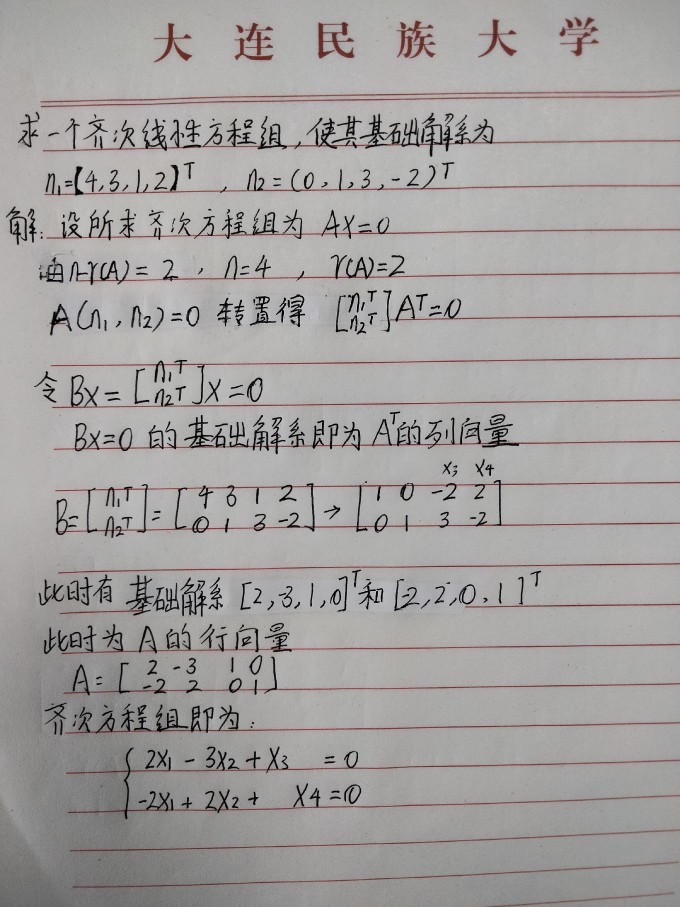 大连民族大学
求一个齐次线性方程组,使其基础解系为
η₁=【4,3,1,2】ᵀ , η₂=(0,1,3,-2)ᵀ
解:设所求齐次方程组为 AX=0
由n-r(A)=2, n=4, r(A)=2
A(η₁,η₂)=0 转置得 [η₁ᵀ η₂ᵀ]Aᵀ=0
令 BX=[η₁ᵀ η₂ᵀ]X=0
BX=0 的基础解系即为Aᵀ的列向量
X₃ X₄
B=[η₁ᵀ η₂ᵀ]=[4 3 1 2 0 1 3 -2]→[1 0 -2 2 0 1 3 -2]
此时有 基础解系[2,-3,1,0]ᵀ和[-2,2,0,1]ᵀ
此时为A的行向量
A=[2 -3 1 0 -2 2 0 1]
齐次方程组即为:
2X₁-3X₂+X₃ =0
-2X₁+2X₂+ X₄=0